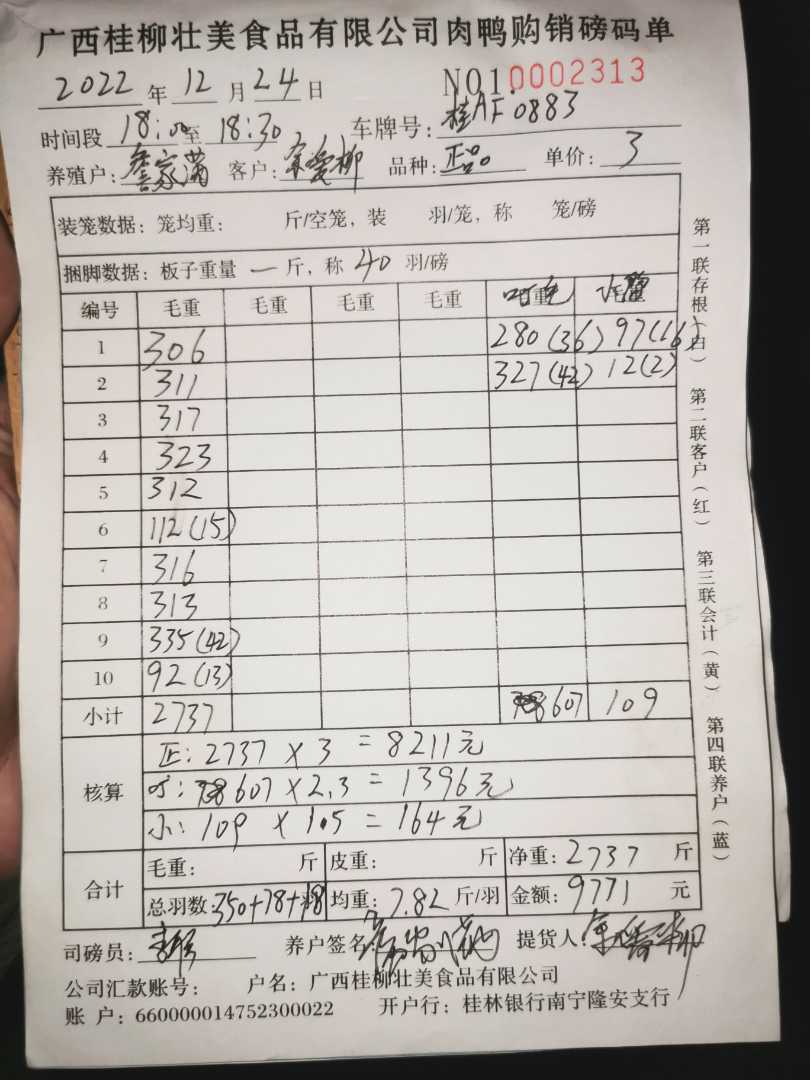 广西桂柳壮美食品有限公司肉鸭购销磅码单
2022 年 12 月 24 日 NO1:0002313
时间段 18:00 至 18:30 车牌号: 桂AF0883
养殖户: 家满 客户: 柳 品种: 正品 单价: 3
装笼数据: 笼均重: 斤/空笼, 装 羽/笼, 称 笼/磅
捆脚数据: 板子重量 一 斤, 称 40 羽/磅
编号 毛重 毛重 毛重 毛重
1 306 280(36) 97(16)
2 311 327(42) 12(2)
3 317
4 323
5 312
6 112(15)
7 316
8 313
9 335(42)
10 92(13)
小计 2737 607 109
核算 正: 2737 × 3 = 8211元
607 × 2.3 = 1396元
小: 109 × 1.05 = 164元
合计 毛重: 斤 皮重: 斤 净重: 2737 斤
总羽数: 350+78+18 均重: 7.82 斤/羽 金额: 9771 元
司磅员: 养户签名: 提货人:
公司汇款账号: 户名: 广西桂柳壮美食品有限公司
账 户: 660000014752300022 开户行: 桂林银行南宁隆安支行
第一联存根(白) 第二联客户(红) 第三联会计(黄) 第四联养户(蓝)